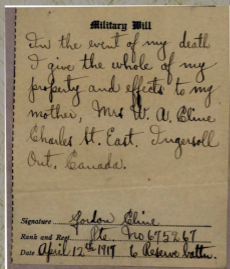 Military Will
In the event of my death
I give the whole of my
property and effects to my
mother, Mrs W. A. Cline
Charles St. East. Ingersoll
Ont. Canada.
Signature Gordon Cline
Rank and Regt. Pte. No 675267
Date April 12th 1917 6 Reserve Battn.